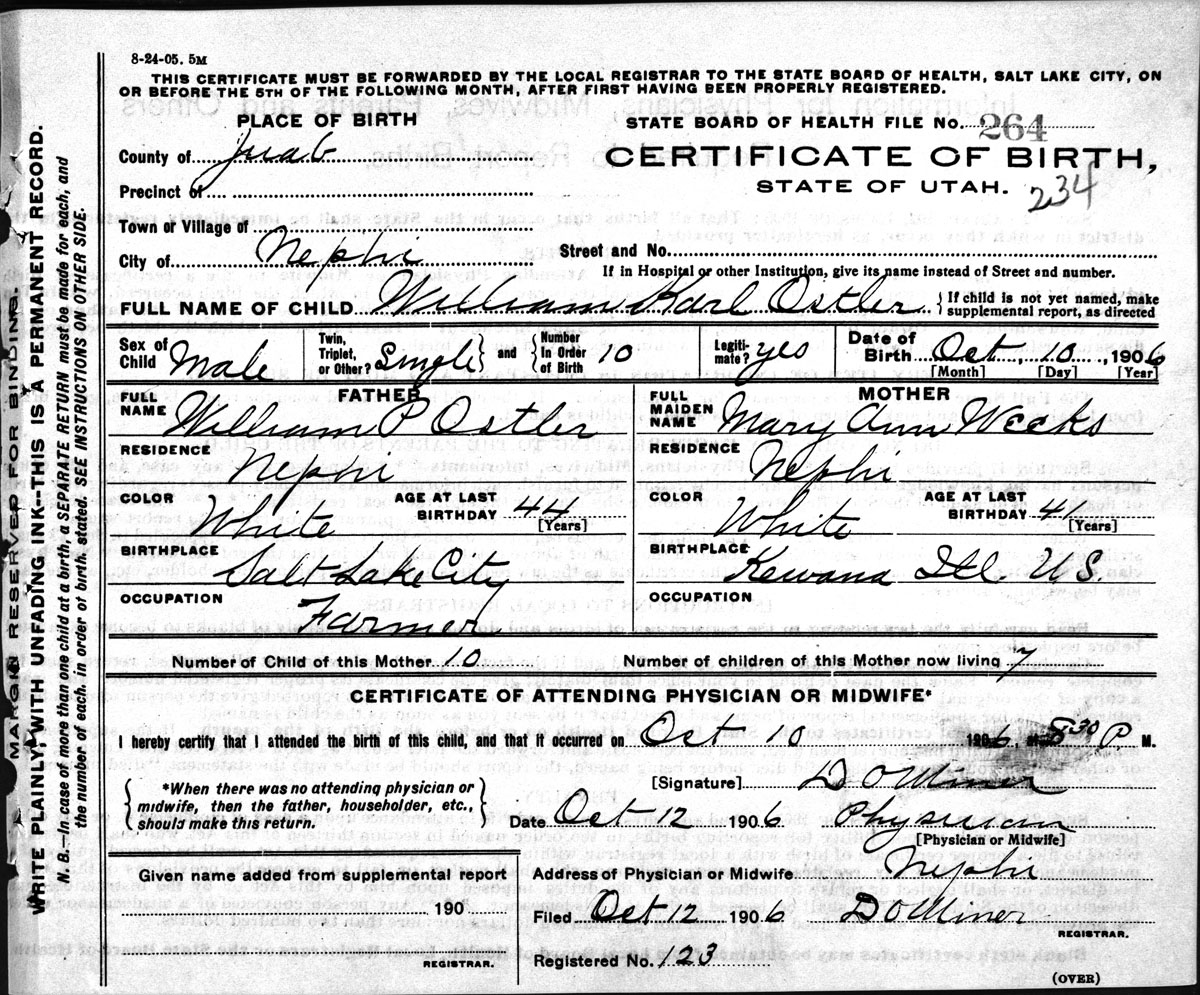 8-24-05. 5M
THIS CERTIFICATE MUST BE FORWARDED BY THE LOCAL REGISTRAR TO THE STATE BOARD OF HEALTH, SALT LAKE CITY, ON
OR BEFORE THE 5TH OF THE FOLLOWING MONTH, AFTER FIRST HAVING BEEN PROPERLY REGISTERED.
PLACE OF BIRTH
STATE BOARD OF HEALTH FILE No. 264
County of Juab
CERTIFICATE OF BIRTH,
Precinct of
STATE OF UTAH. 234
Town or Village of
City of Nephi Street and No.
If in Hospital or other Institution, give its name instead of Street and number.
FULL NAME OF CHILD William Karl Ostler } If child is not yet named, make supplemental report, as directed
Sex of Child Male Twin, Triplet, or Other? Single } and { Number In Order of Birth 10 Legiti-mate? yes Date of Birth Oct 10, 1906
[Month] [Day] [Year]
FATHER MOTHER
FULL NAME William P Ostler FULL MAIDEN NAME Mary Ann Weeks
RESIDENCE Nephi RESIDENCE Nephi
COLOR White AGE AT LAST BIRTHDAY 44 [Years] COLOR White AGE AT LAST BIRTHDAY 41 [Years]
BIRTHPLACE Salt Lake City BIRTHPLACE Kewana Ill. U.S.
OCCUPATION Farmer OCCUPATION
Number of Child of this Mother 10 Number of children of this Mother now living 7
CERTIFICATE OF ATTENDING PHYSICIAN OR MIDWIFE*
I hereby certify that I attended the birth of this child, and that it occurred on Oct 10 1906, at 8:30 P M.
[Signature] D O Miner
{ *When there was no attending physician or midwife, then the father, householder, etc., should make this return. }
Date Oct 12 1906 Physician
[Physician or Midwife]
Given name added from supplemental report
Address of Physician or Midwife Nephi
190
Filed Oct 12 1906 D O Miner
REGISTRAR.
REGISTRAR.
Registered No. 123
(OVER)
MARGIN RESERVED FOR BINDING.
WRITE PLAINLY, WITH UNFADING INK--THIS IS A PERMANENT RECORD.
N. B.—In case of more than one child at a birth, a SEPARATE RETURN must be made for each, and
the number of each, in order of birth, stated. SEE INSTRUCTIONS ON OTHER SIDE.